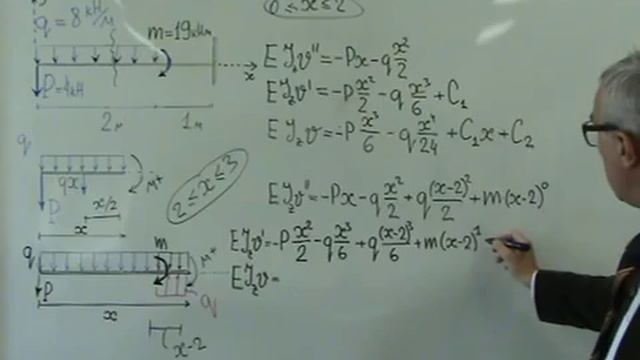 q = 8 кН/м
m=19кНм
P=4кН
x
2 м
1 м
0 ≤ x ≤ 2
EJ_z v'' = -Px - q x²/2
EJ_z v' = -P x²/2 - q x³/6 + C₁
EJ_z v = -P x³/6 - q x⁴/24 + C₁x + C₂
q
qx
M*
P
x/2
x
2 ≤ x ≤ 3
EJ_z v'' = -Px - q x²/2 + q (x-2)²/2 + m(x-2)⁰
EJ_z v' = -P x²/2 - q x³/6 + q (x-2)³/6 + m(x-2)¹
EJ_z v =
q
m
M*
P
q
x
x-2